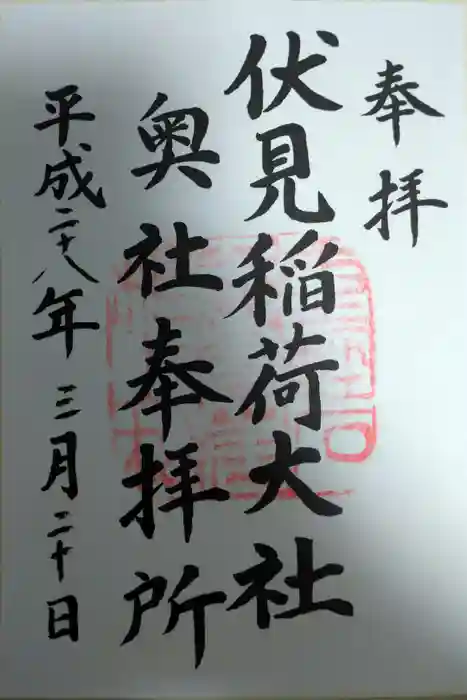 奉拝
伏見稲荷大社
奥社奉拝所
平成二十八年三月二十日